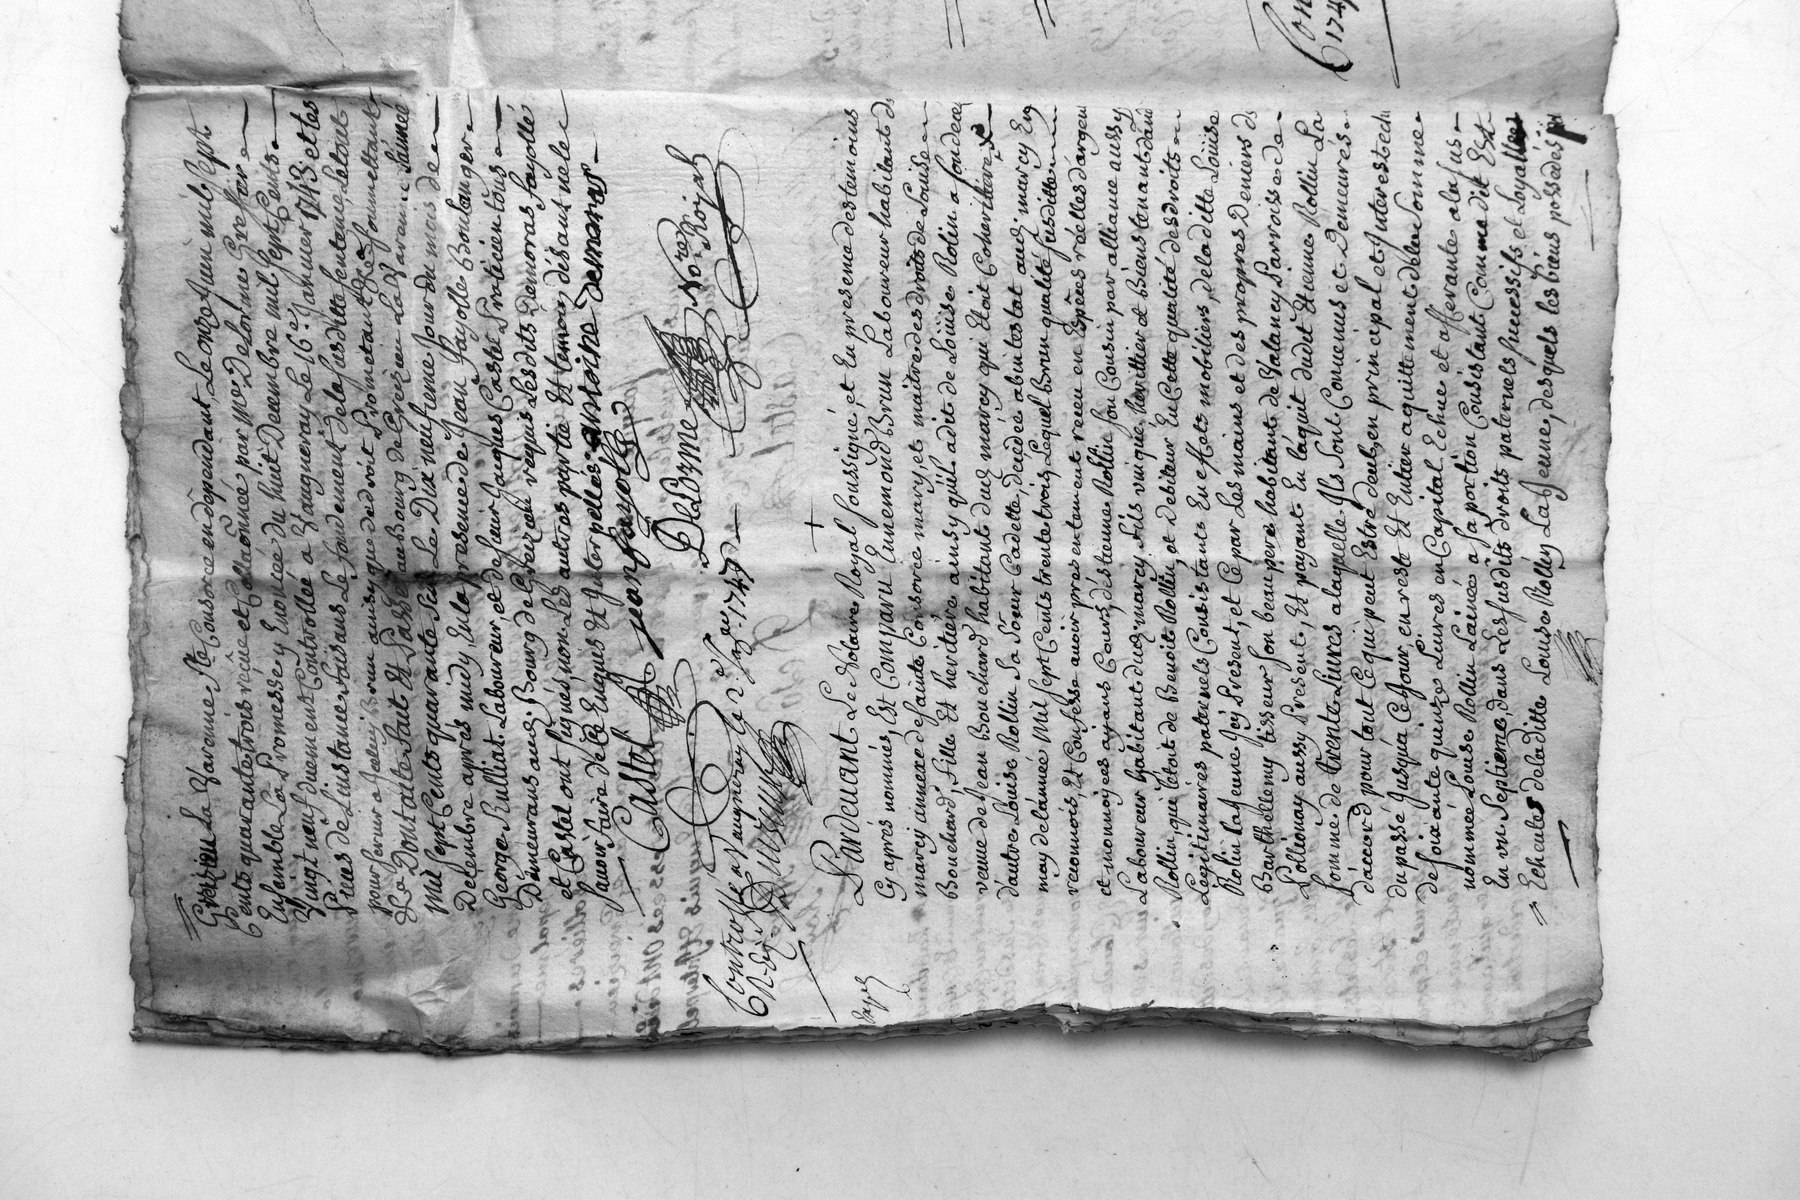 Grézieu La Varenne Ste Consorce en dépendant, Le onze Juin mil sept
Cents quarante trois reçüe et Collationnée par Me Delorme Greffier
Ensemble La Promesse y Enoncée du huit Decembre mil sept Cents
Vingt neuf duement Controllée a Vaugneray Le 16e Janvier 1743 et les
Pieces de L'instance faisans Le fondement de la susditte sentence, le tout
pour servir a Jean Brun ainsy que de droit Promettant &a soumettant
&a Dont acte fait Et Passé au bourg de Grézieu La Varenne L'année
Mil sept Cents quarante Six Le Dix neufieme Jour du mois de
Decembre apres midy, En la presence de Jean fayolle Boulanger
George Julliat Laboureur, et de sieur Jaques Castel Praticien tous
Demeurans aud. Bourg de Grézieu requis Lesdits Demoras fayolle
et Castel ont signés non Les autres partie Et temoin disant ne le
sçavoir faire de Ce Enquis Et Interpellés antoine demoras
Castel jean fayolle Delorme Nore Royal
Controllé a Vaugneray Le 2e Janer 1747
+
Pardevant Le Notaire Royal soussigné, et En presence des temoins
Cy apres nommés, Est Comparu Ennemond Brun Laboureur habitant de
marcy annexe de sainte Consorce mary, et maitre des droits de Louise
Bouchard, fille Et heritière ainsy qu'il a dit de Loüise Rolin a son deces
veuve de Jean Bouchard habitant dud marcy qui Etait Coheritiere
d'autre Louise Rollin sa sœur Cadette, decedée abintestat aud. marcy En
may de lannée Mil sept Cents trente trois, Lequel brun en qualité susditte
reconnois, Et Confesse avoir presentement receu en Espèces réelles d'argent
et monnoyes ayans Cours, d'Etienne Rollin son Cousin par alliance aussy
Laboureur habitant dud. marcy fils unique, heritier et Biens tenant dautre
Rollin, qui létoit de Benoit Rollin, et debiteur En Cette qualité des droits
Legitimaires paternels Consistants En effets mobiliers, de la ditte Loüise
Rolin la Jeune Icy Present, et Ce par Les mains et des propres Deniers de
Barthellemy tisseur son beau pere habitant de Valancy Parroisse de
Pollionay aussy Present, Et payant En l'aquit dudit Etienne Rollin La
somme de trente Livres a laquelle Ils sont Convenus et Demeurés
d'accord pour tout Ce qui peut Estre deub, en principal et Interest echu
du passé Jusqu'a Ce Jour, en reste Et Entier aquittement de la somme
de soixante quinze Livres en Capital Echue et afferante a la sus
nommée Louise Rollin L'ainée a sa portion Consistant Comme dit Est
En un septieme dans Les susdits droits paternels successifs et Loyalles
Echeutes de la ditte Louise Rollin La Jeune, desquels les biens possedés